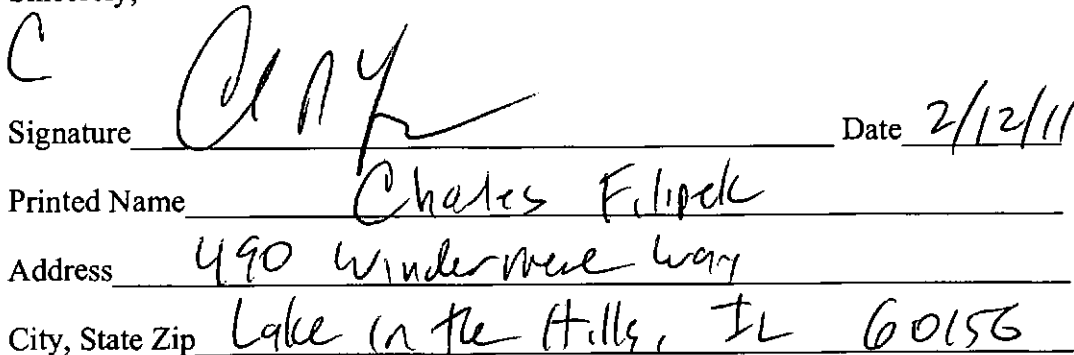 C
Signature Date 2/12/11
Printed Name Charles Filipek
Address 490 Windermere Way
City, State Zip Lake in the Hills, IL 60156